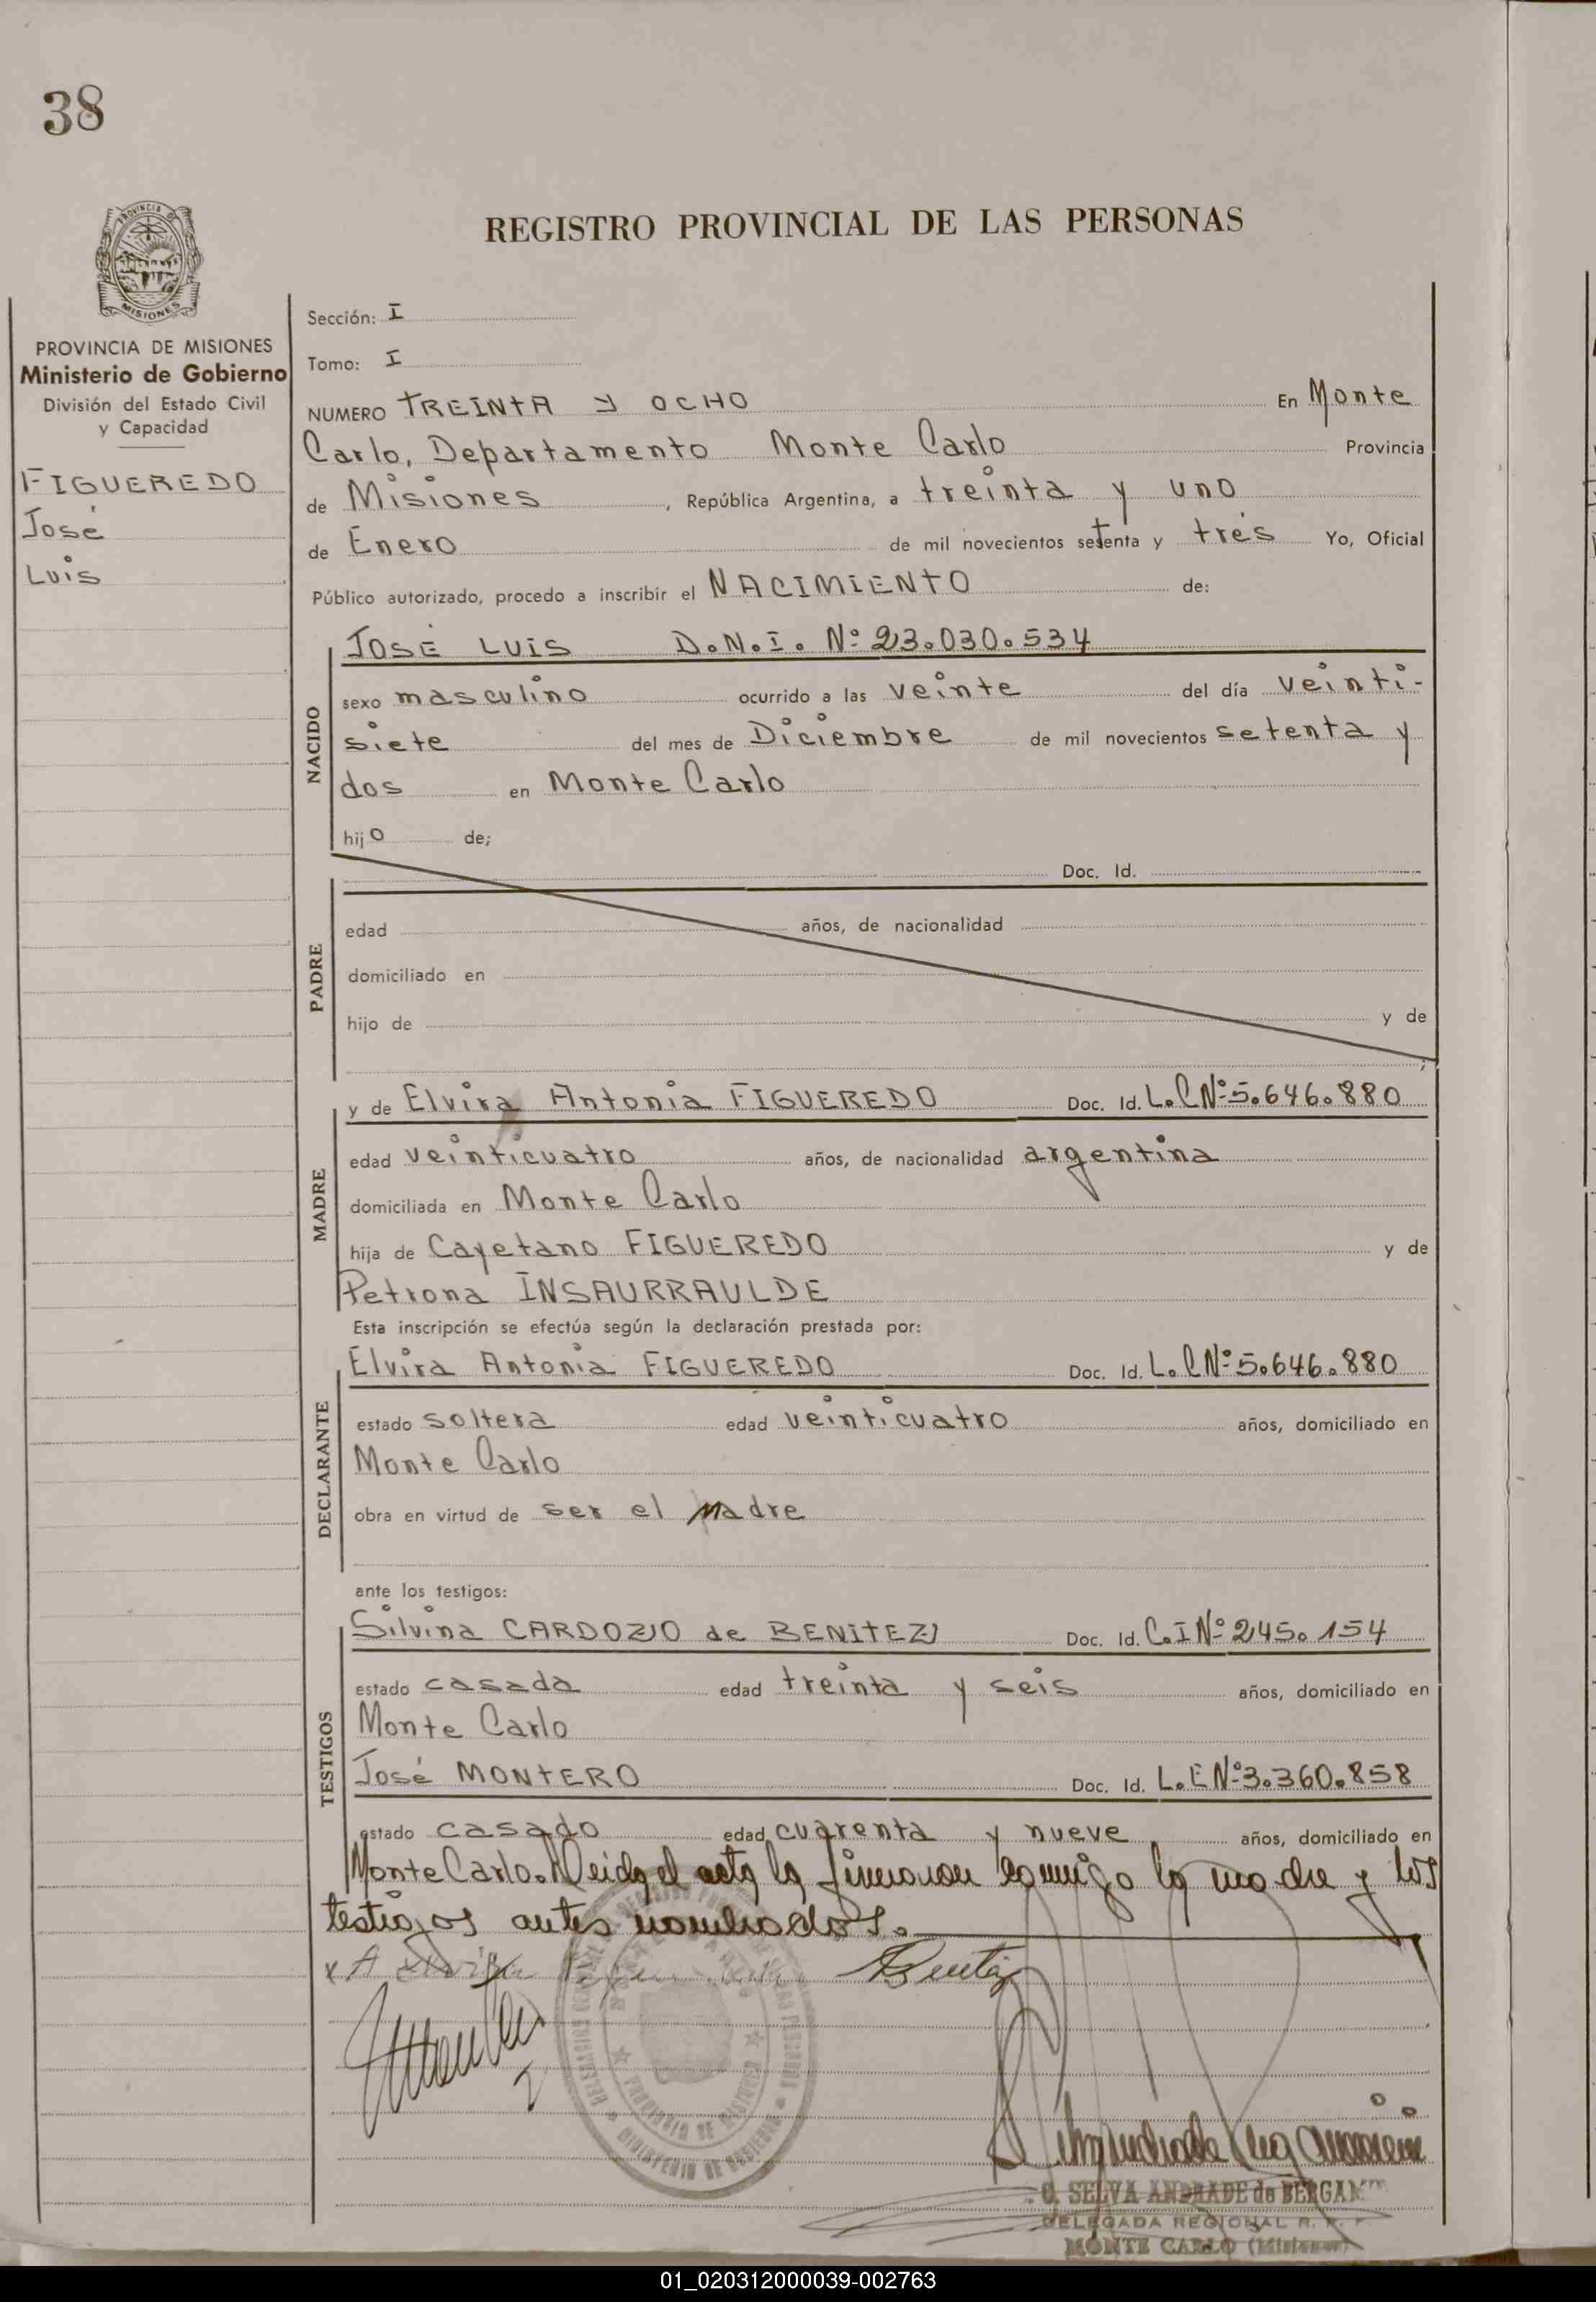 38
PROVINCIA DE
MISIONES
REGISTRO PROVINCIAL DE LAS PERSONAS
PROVINCIA DE MISIONES
Ministerio de Gobierno
División del Estado Civil
y Capacidad
FIGUEREDO
José
Luis
Sección: I
Tomo: I
NUMERO TREINTA Y OCHO En Monte
Carlo, Departamento Monte Carlo Provincia
de Misiones, República Argentina, a treinta y uno
de Enero de mil novecientos setenta y tres Yo, Oficial
Público autorizado, procedo a inscribir el NACIMIENTO de:
NACIDO
JOSÉ LUIS D.N.I. Nº 23.030.534
sexo masculino ocurrido a las veinte del día veinti-
siete del mes de Diciembre de mil novecientos setenta y
dos en Monte Carlo
hijo de;
PADRE
Doc. Id.
edad años, de nacionalidad
domiciliado en
hijo de y de
;
MADRE
y de Elvira Antonia FIGUEREDO Doc. Id. L.C Nº 5.646.880
edad veinticuatro años, de nacionalidad argentina
domiciliada en Monte Carlo
hija de Cayetano FIGUEREDO y de
Petrona INSAURRAULDE
Esta inscripción se efectúa según la declaración prestada por:
DECLARANTE
Elvira Antonia FIGUEREDO Doc. Id. L.C Nº 5.646.880
estado soltera edad veinticuatro años, domiciliado en
Monte Carlo
obra en virtud de ser el Madre
ante los testigos:
TESTIGOS
Silvina CARDOZO de BENITEZ Doc. Id. C.I Nº 245.154
estado casada edad treinta y seis años, domiciliado en
Monte Carlo
José MONTERO Doc. Id. L.E Nº 3.360.858
estado casado edad cuarenta y nueve años, domiciliado en
Monte Carlo. Leida el acta la firmaron conmigo la madre y los
testigos antes nombrados.
PROVINCIA DE MISIONES
MINISTERIO DE GOBIERNO
SELVA ANDRADE de BERGANT
DELEGADA REGIONAL R.
MONTE CARLO (Misiones)
01_020312000039-002763